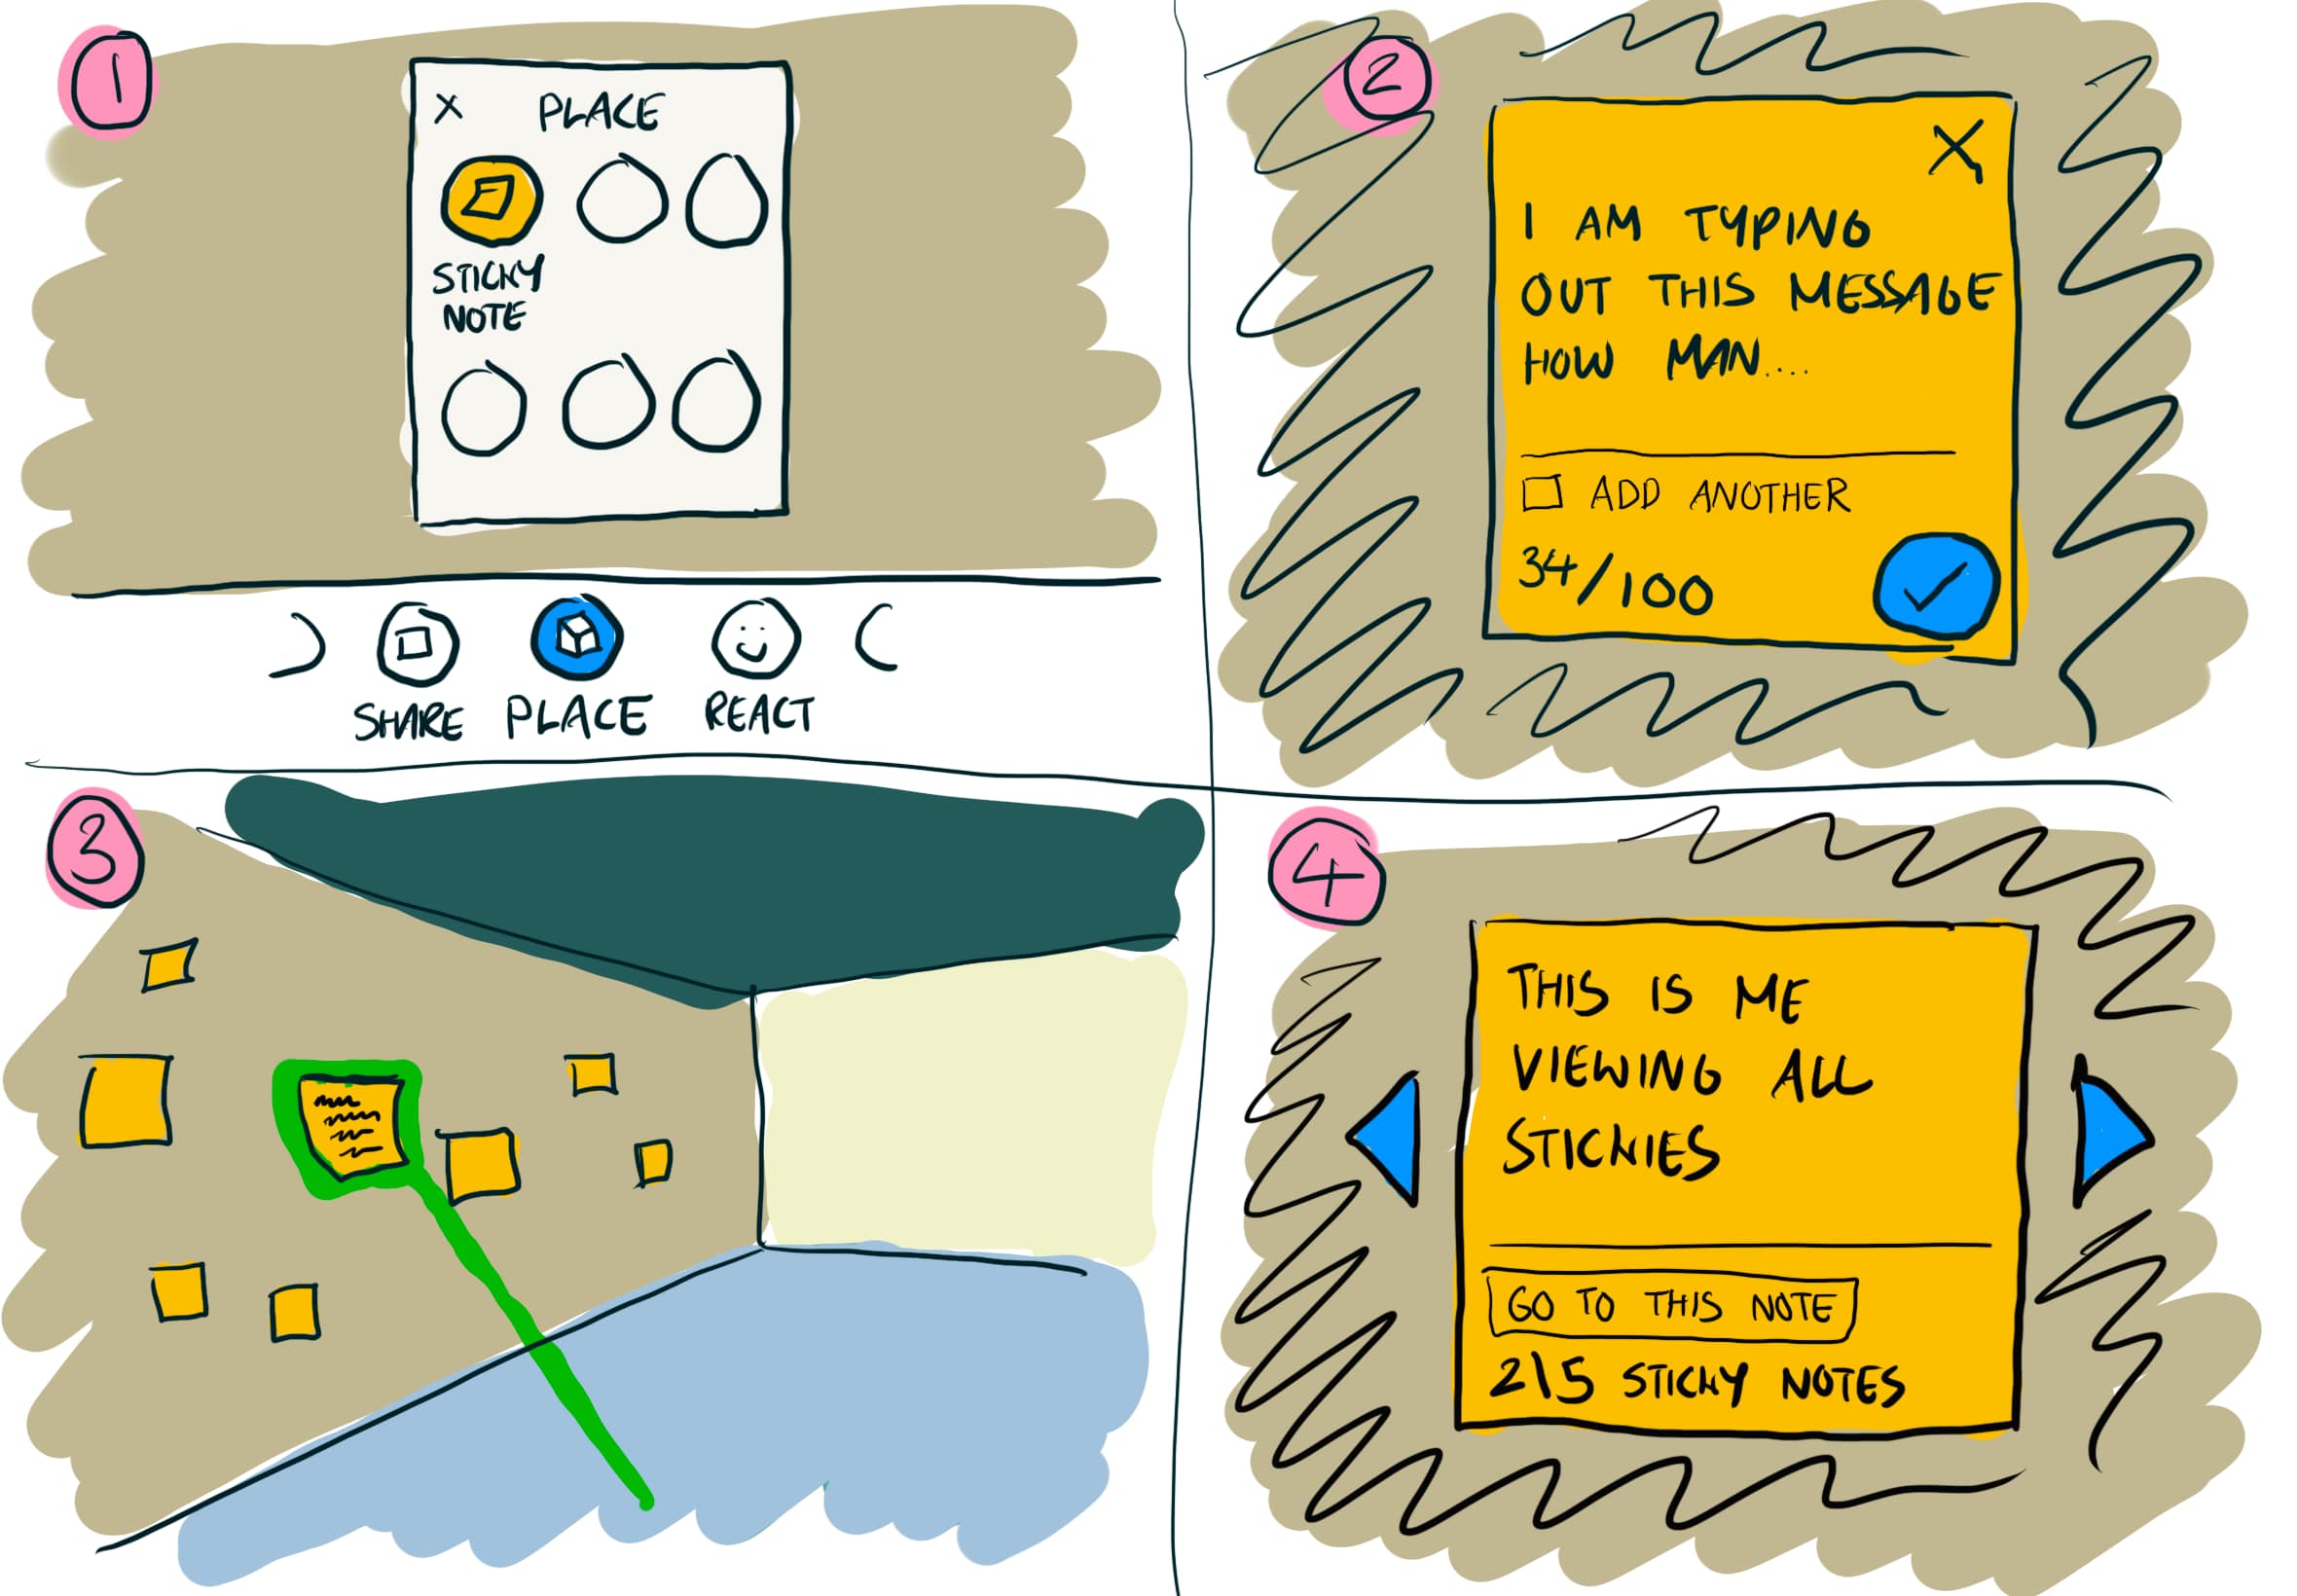 1
X PLACE
STICKY
NOTE
SHARE PLACE REACT
2
X
I AM TYPING
OUT THIS MESSAGE
HOW MAN....
ADD ANOTHER
34/100
3
4
THIS IS ME
VIEWING ALL
STICKIES
GO TO THIS NOTE
2\5 STICKY NOTES